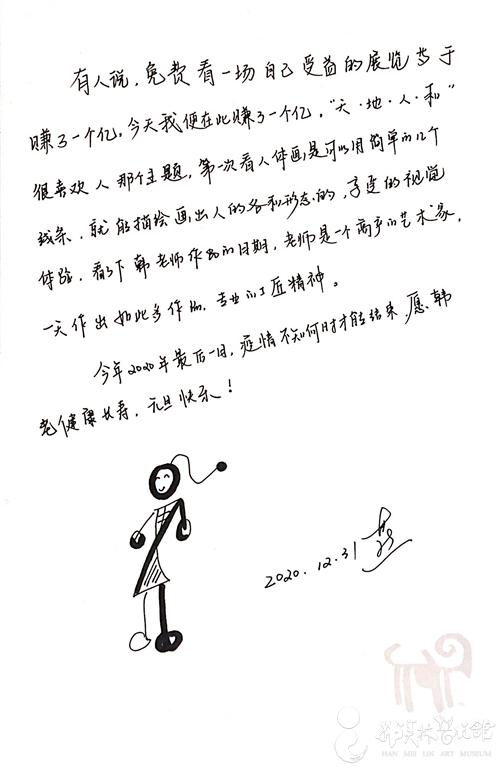 有人说，免费看一场自己受益的展览当于
赚了一个亿，今天我便在此赚了一个亿，“天·地·人·和”
很喜欢人那个主题，第一次看人体画是可以用简单的几个
线条，就能描绘画出人的各种形态的，享受的视觉
体验．看了下韩老师作品的日期，老师是一个高产的艺术家，
一天作出如此多作品，专业的工匠精神。
今年2020年最后一日，疫情不知何时才能结束，愿韩
老健康长寿，元旦快乐！
2020.12.31
韩美林艺术馆
HAN MEI LIN ART MUSEUM